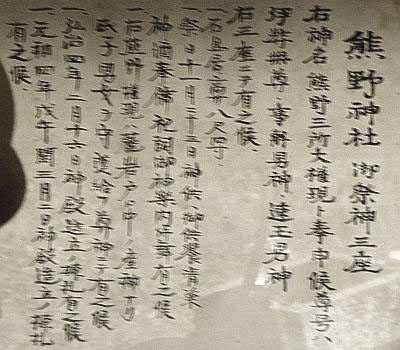 熊野神社 御祭神三座
右神名熊野三所大権現ト奉申候尊号ハ
伊弉冊尊 事解男神 速玉男神
右三座ニテ有之候
一石
一祭日十一月十三日神供御供餅肴菓
神酒奉備 祝詞御神楽内
一右熊野権現ハ ト申ノ産神ナリ
氏子男女ヲ守護給フ尊神ニテ有之候
一弘治四年二月十六日神殿造立ノ棟札有之候
一元和四年戊午閏三月二日神殿造立ノ棟札
有之候